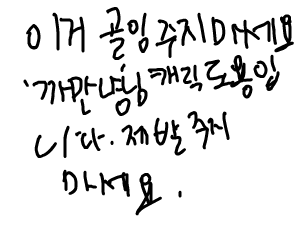 이거 골잉주지마세요
'까만녕님캐릭도용입
니다. 제발주지
마세요.